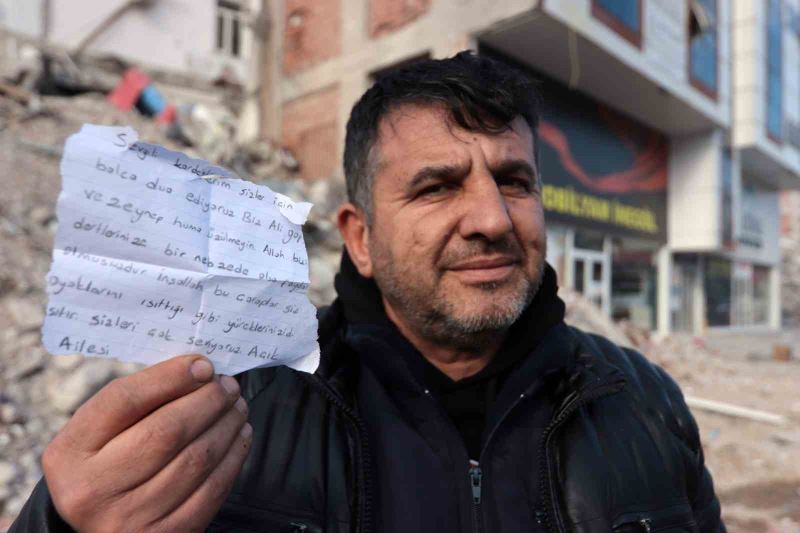 Sevgili kardeşlerim sizler için
bolca dua ediyoruz Biz Ali
ve zeynep huma üzülmeyin. Allah
dertlerinize bir nebzede olsa
olmuşuzdur inşallah bu çoraplar siz
ayaklarını ısıttığı gibi yüreklerinizi
sıtır. sizleri çok seviyoruz Açık
Ailesi